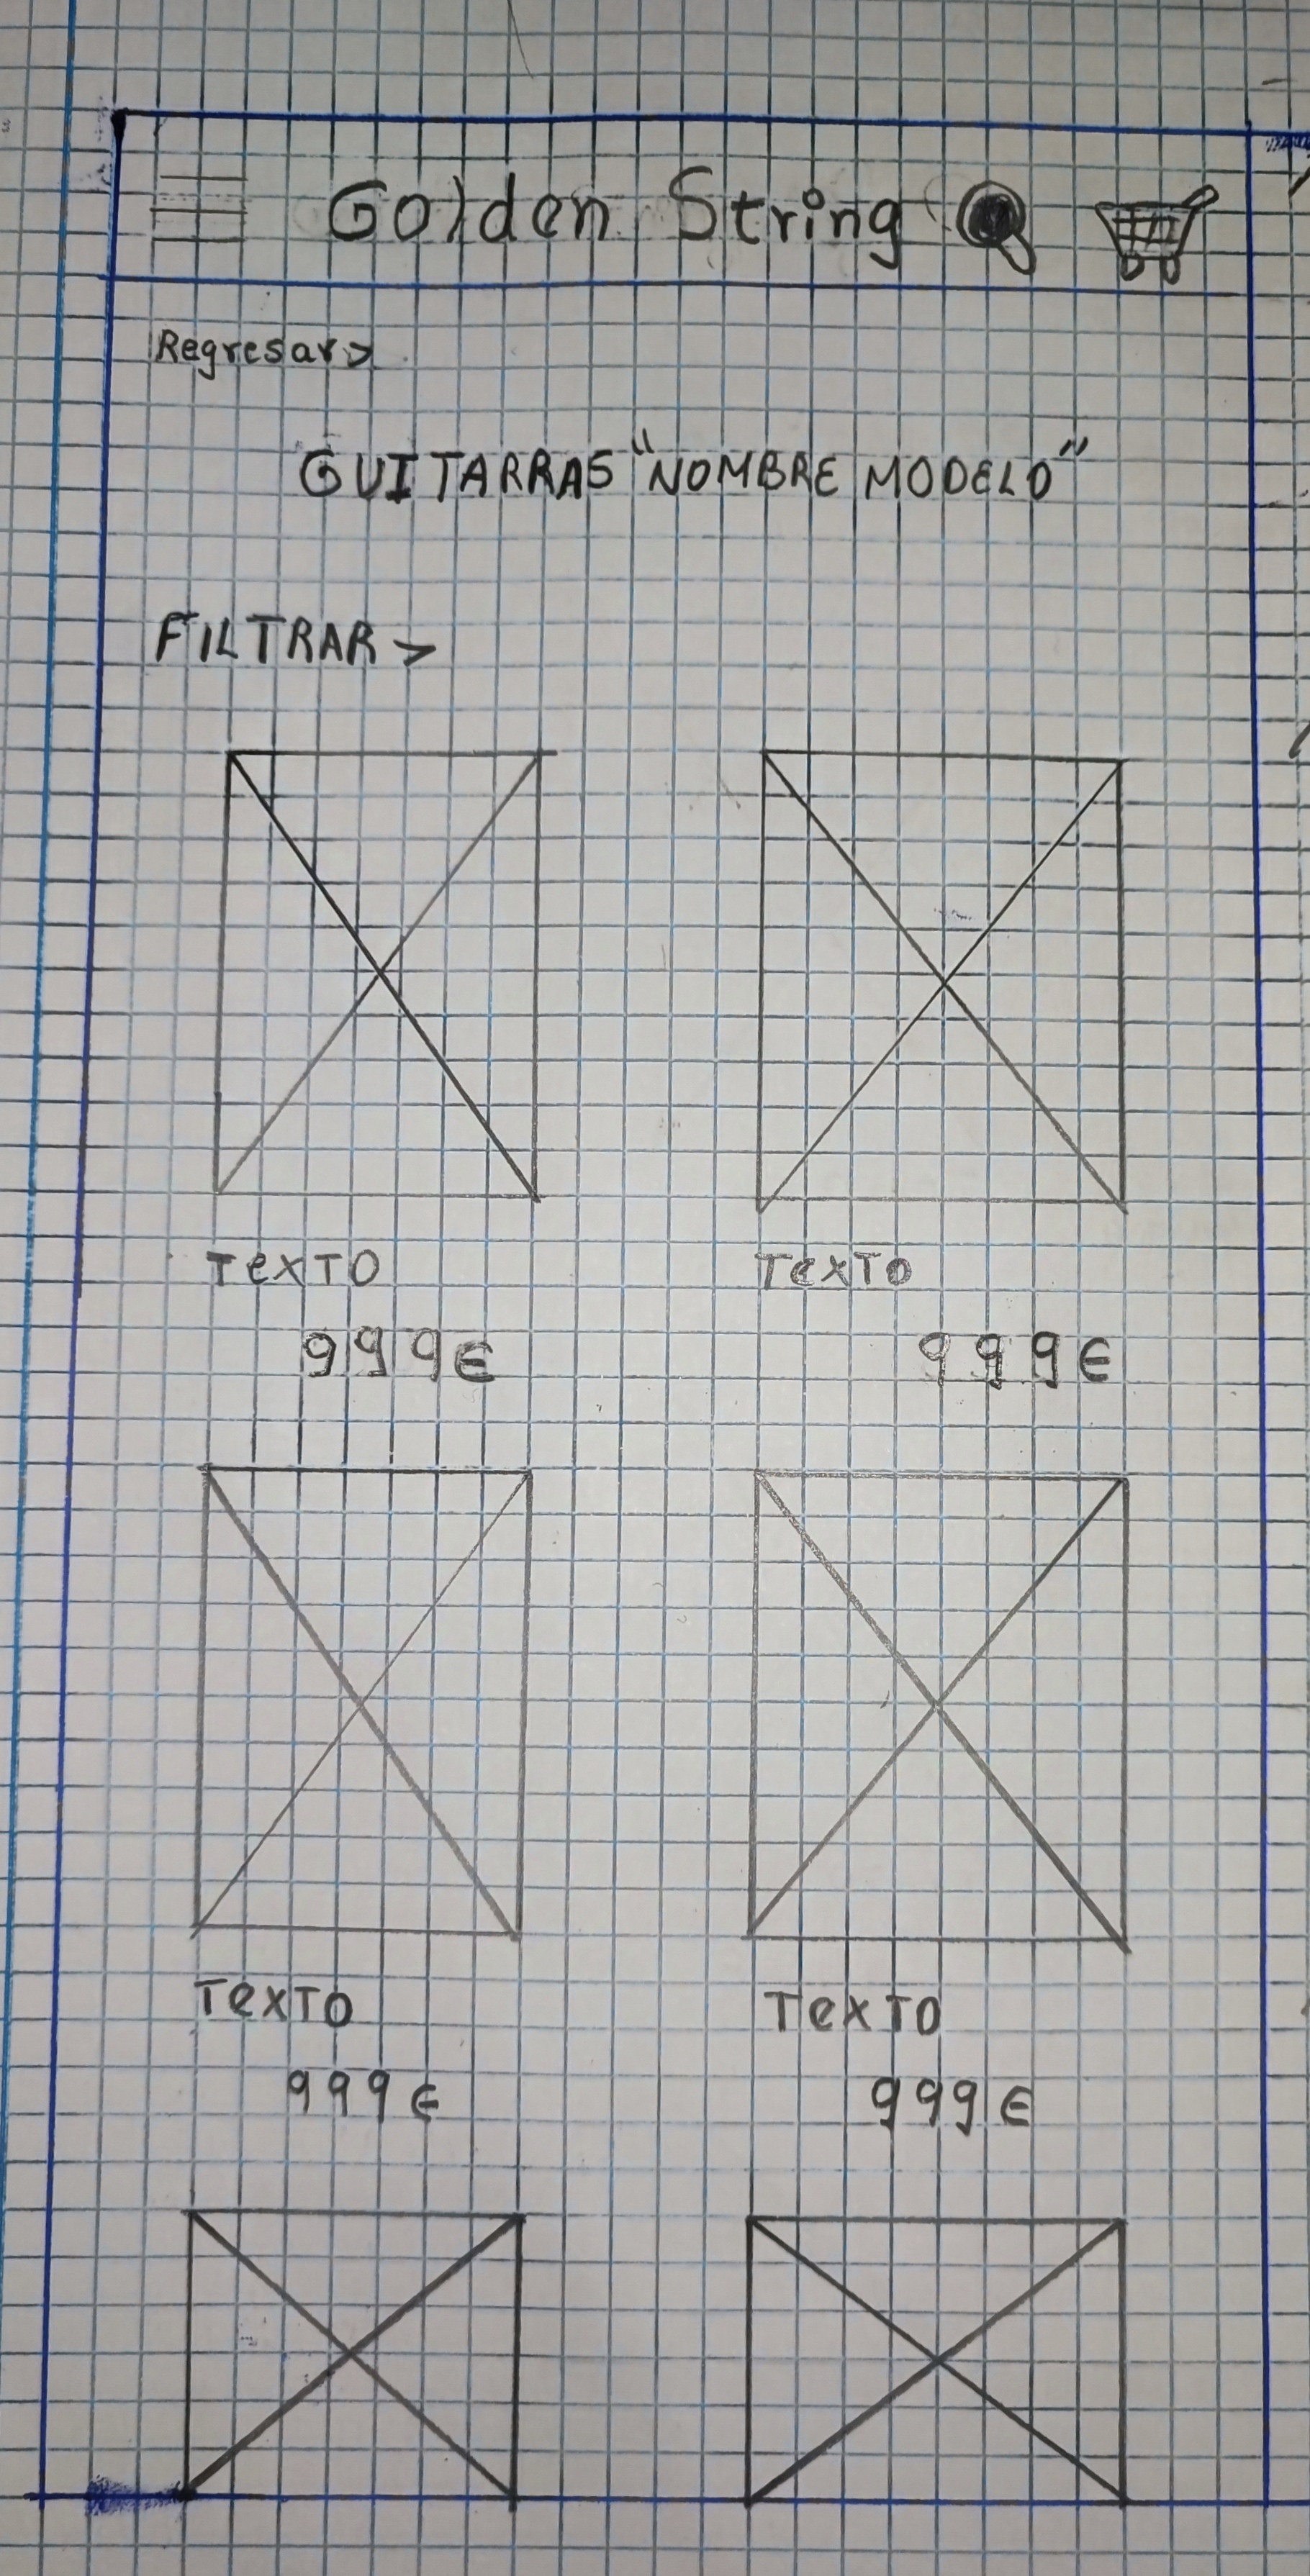 Golden String
Regresar>
GUITARRAS "NOMBRE MODELO"
FILTRAR >
TexTO TexTo
999€ 999€
TexTO TexTO
999€ 999€